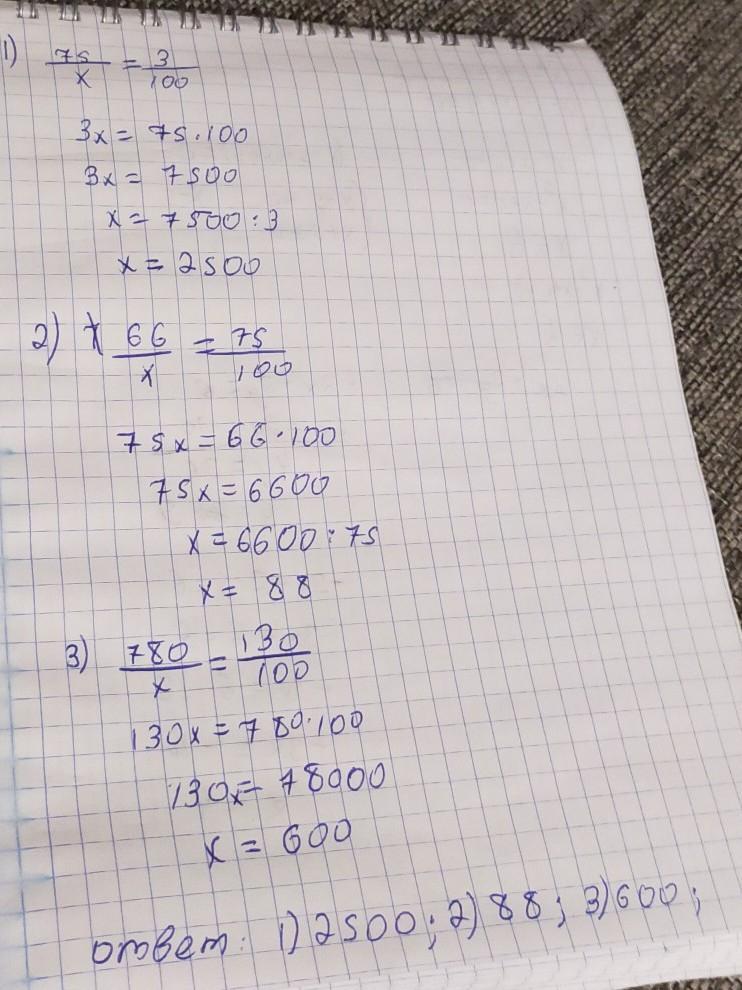 1) 75/x = 3/100
3x = 75·100
3x = 7500
x = 7500 : 3
x = 2500
2) 66/x = 75/100
75x = 66·100
75x = 6600
x = 6600 : 75
x = 88
3) 780/x = 130/100
130x = 780·100
130x = 78000
x = 600
ответ: 1) 2500; 2) 88; 3) 600;